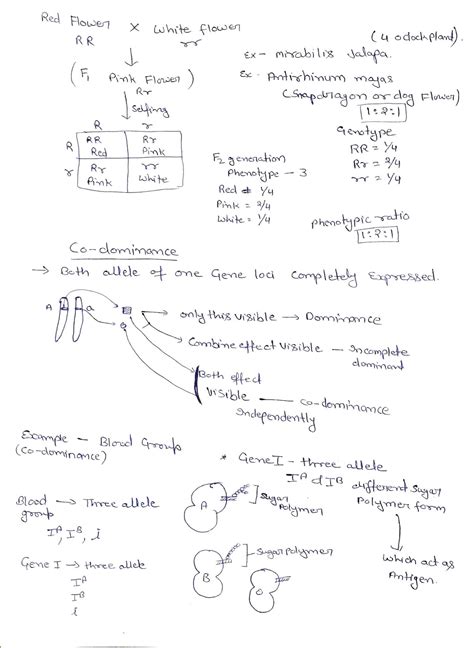 Red Flower × White flower
RR rr
(4 o clock plant).
Ex - mirabilis Jalapa.
(F1 Pink Flower)
Rr
Ex - Antirhinum majas
(Snapdragon or dog Flower)
↓ Selfing
1:2:1
R r
R RR Red Rr Pink
r Rr Pink rr White
Genotype
RR = 1/4
Rr = 2/4
rr = 1/4
F2 generation
Phenotype - 3
Red = 1/4
Pink = 2/4
White = 1/4
phenotypic ratio
1:2:1
Co-dominance
→ Both allele of one Gene loci Completely Expressed.
A a
only this visible → Dominance
Combine effect visible - Incomplete dominant
Both effect
Visible - co-dominance
Independently
Example - Blood Group
(co-dominance)
* Gene I - three allele
IA & IB different Sugar
Polymer form
Blood group → Three allele
IA, IB, i
A
Sugar Polymer
which act as
Antigen.
Gene I → three allele
IA
IB
i
B
Sugar Polymer
O